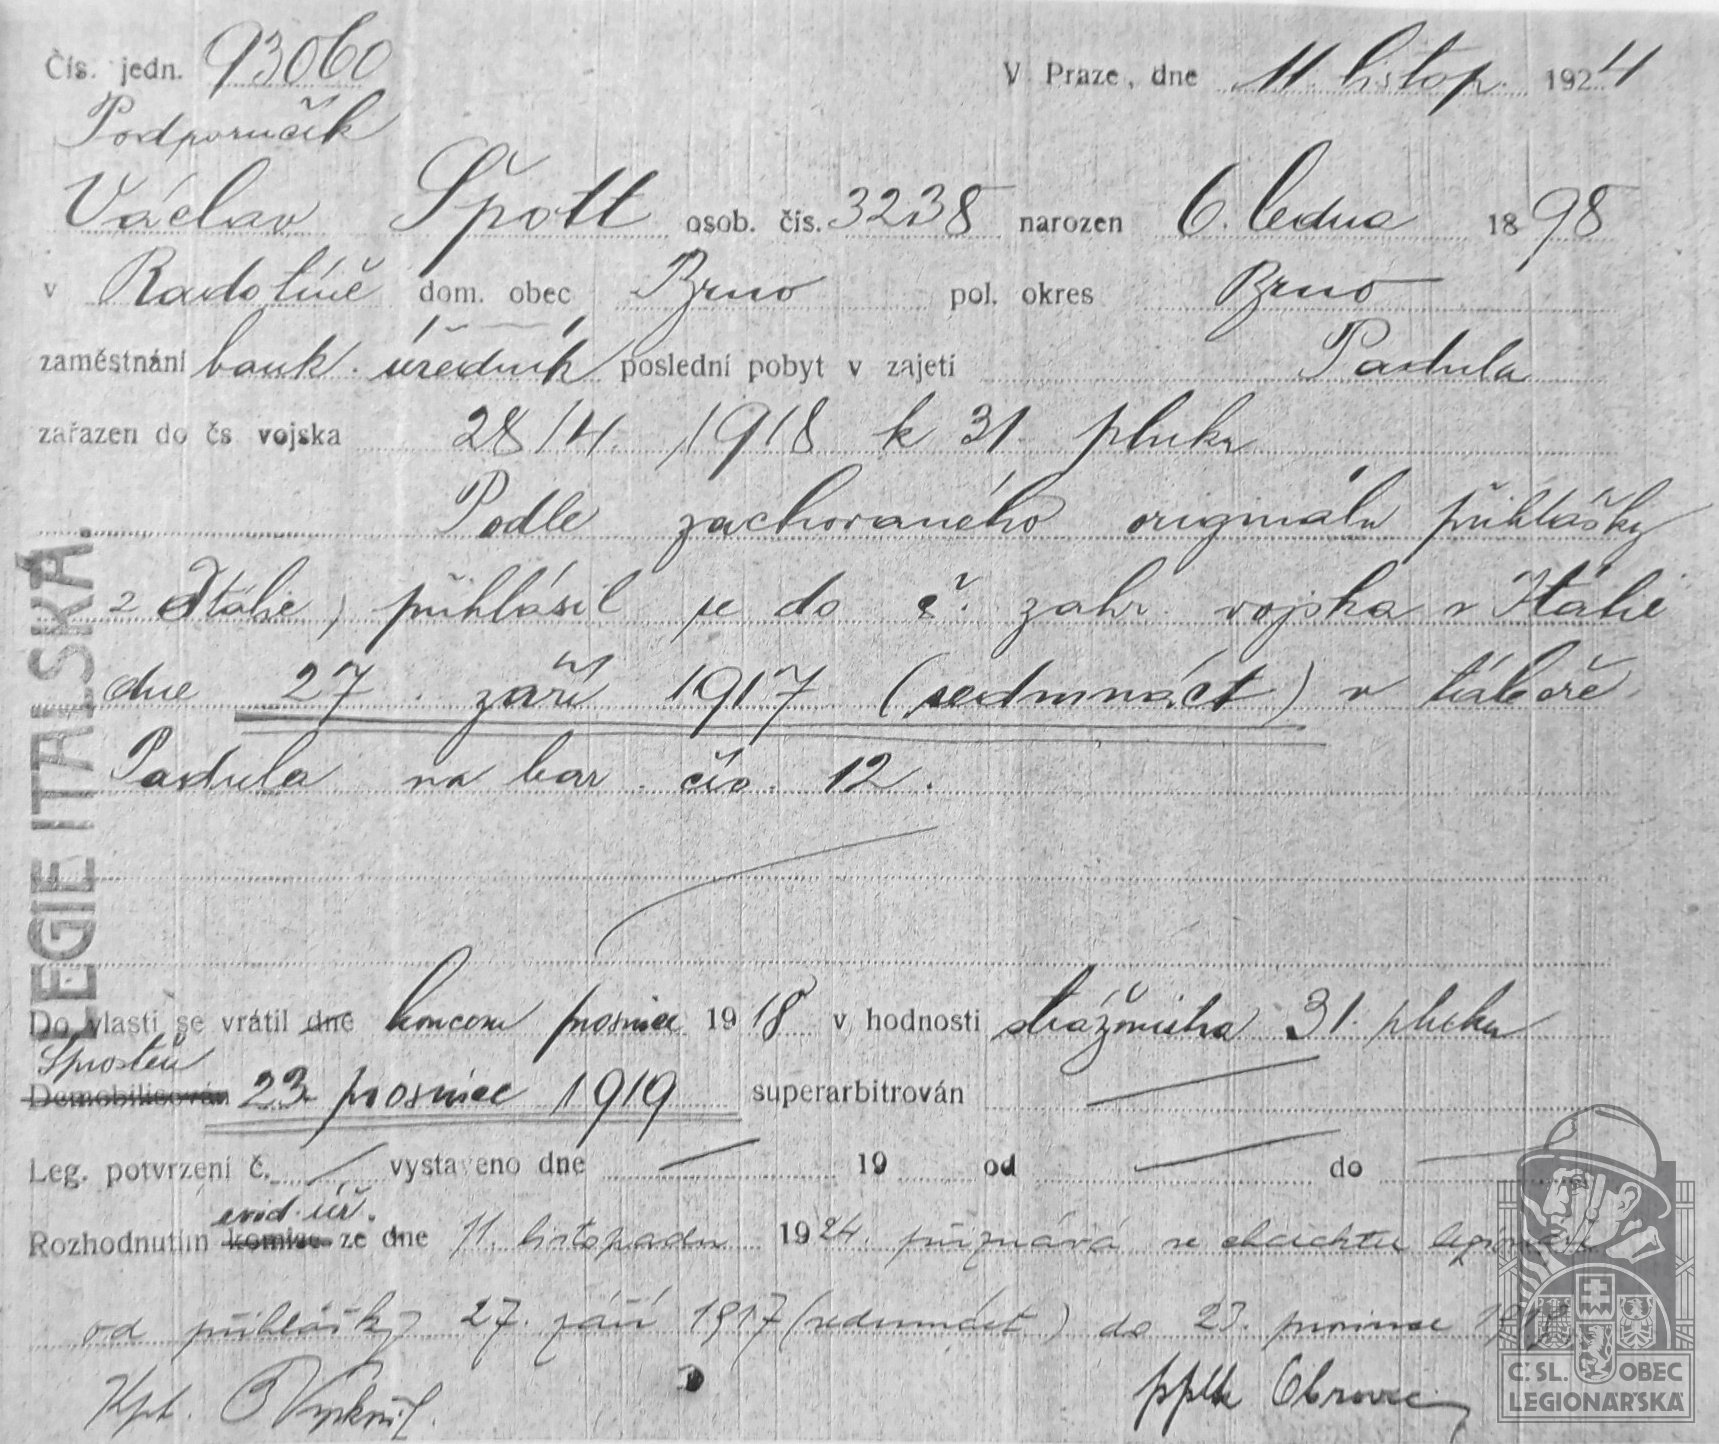 Čís. jedn. 93060 V Praze, dne 11. listop. 1924
Podporučík
Václav Špott osob. čís. 3238 narozen 6. ledna 1898
v Radotíně dom. obec Brno pol. okres Brno
zaměstnání bank. úředník poslední pobyt v zajetí Padula
zařazen do čs vojska 28/4. 1918 k 31. pluku
Podle zachovaného originálu přihlášky
z Itálie, přihlásil se do č. zahr. vojska v Itálii
dne 27. září 1917 (sedmnáct) v táboře
Padula na bar. čís. 12.
LEGIE ITALSKÁ.
Do vlasti se vrátil dne koncem prosince 1918 v hodnosti strážmistra 31. pluku
Sproštěn
Demobilisován 23. prosince 1919 superarbitrován
Leg. potvrzení č. vystaveno dne 19 od do
evid. úř.
Rozhodnutím komise ze dne 11. listopadu 1924. přiznává se
od přihlášky 27. září 1917 (sedmnáct) do 23. prosince 1919
Kpt. pplk
Č. SL. OBEC
LEGIONÁŘSKÁ